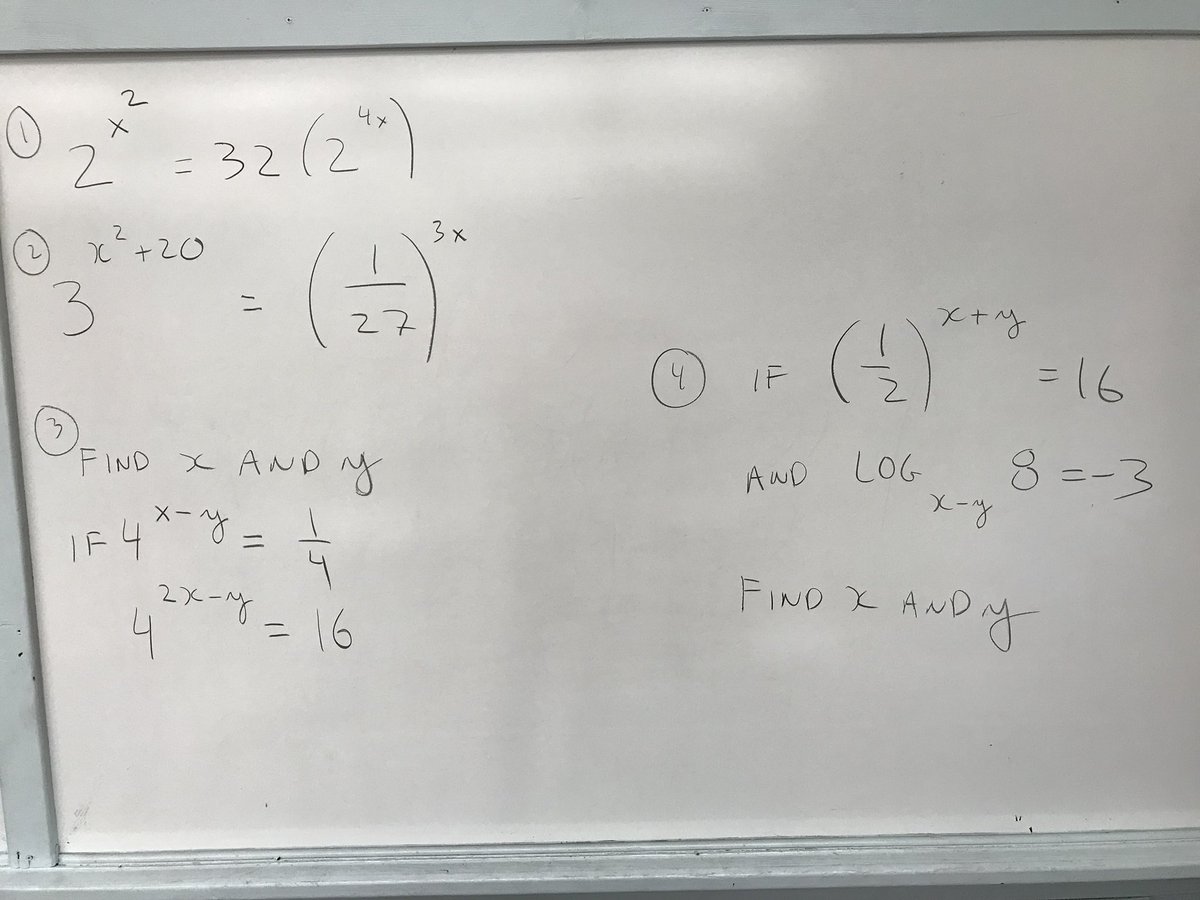 ① 2^x^2 = 32 (2^4x)
② 3^x^2+20 = (1/27)^3x
③ FIND x AND y
IF 4^x-y = 1/4
4^2x-y = 16
④ IF (1/2)^x+y = 16
AND LOG_x-y 8 = -3
FIND x AND y